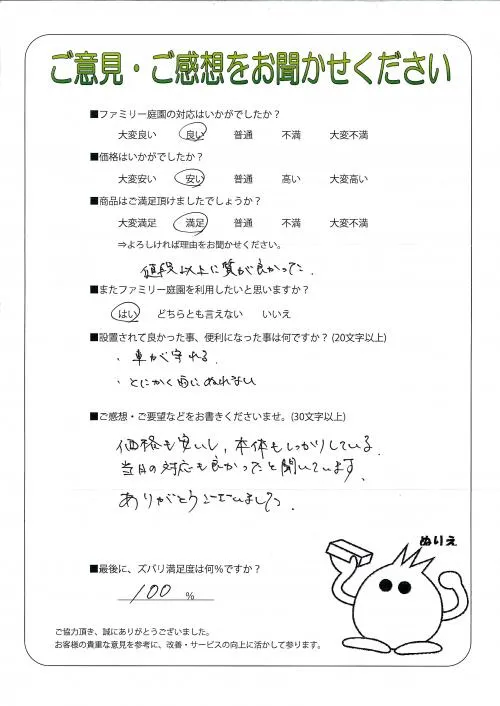 ご意見・ご感想をお聞かせください
■ファミリー庭園の対応はいかがでしたか？
大変良い 良い 普通 不満 大変不満
■価格はいかがでしたか？
大変安い 安い 普通 高い 大変高い
■商品はご満足頂けましたでしょうか？
大変満足 満足 普通 不満 大変不満
⇒よろしければ理由をお聞かせください。
値段以上に質が良かった.
■またファミリー庭園を利用したいと思いますか？
はい どちらとも言えない いいえ
■設置されて良かった事、便利になった事は何ですか？(20文字以上)
・車が守れる.
・とにかく雨にぬれない
■ご感想・ご要望などをお書きくださいませ。(30文字以上)
価格も安いし、本体もしっかりしている.
当日の対応も良かったと聞いています.
ありがとうございました.
ぬりえ
■最後に、ズバリ満足度は何%ですか？
100 %
ご協力頂き、誠にありがとうございました。
お客様の貴重な意見を参考に、改善・サービスの向上に活かして参ります。